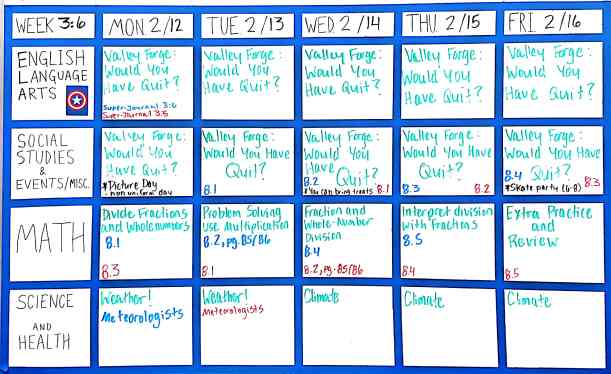 WEEK 3:6
MON 2/12
TUE 2/13
WED 2/14
THU 2/15
FRI 2/16
ENGLISH
LANGUAGE
ARTS
Valley Forge:
Would You
Have Quit?
Super-Journal 3:6
Super-Journal 3:5
Valley Forge:
Would You
Have Quit?
Valley Forge:
Would You
Have Quit?
Valley Forge:
Would You
Have Quit?
Valley Forge:
Would You
Have Quit?
SOCIAL
STUDIES
&
EVENTS/MISC.
Valley Forge:
Would You
Have Quit?
*Picture Day
- non uniform day
Valley Forge:
Would You Have
Quit?
8.1
Valley Forge:
Would You
Have
8.2 Quit?
*You can bring treats 8.1
Valley Forge:
Would You Have
Quit?
8.3 8.2
Valley Forge:
Would You Have
8.4 Quit? 8.3
*Skate party (6-8)
MATH
Divide Fractions
and Whole numbers
8.1
8.3
Problem Solving
Use Multiplication
8.2, pg. 85/86
8.1
Fraction and
Whole-Number
Division
8.4
8.2, pg. 85/86
Interpret division
with Fractions
8.5
8.4
Extra Practice
and
Review
8.5
SCIENCE
AND
HEALTH
Weather!
Meteorologists
Weather!
Meteorologists
Climate
Climate
Climate